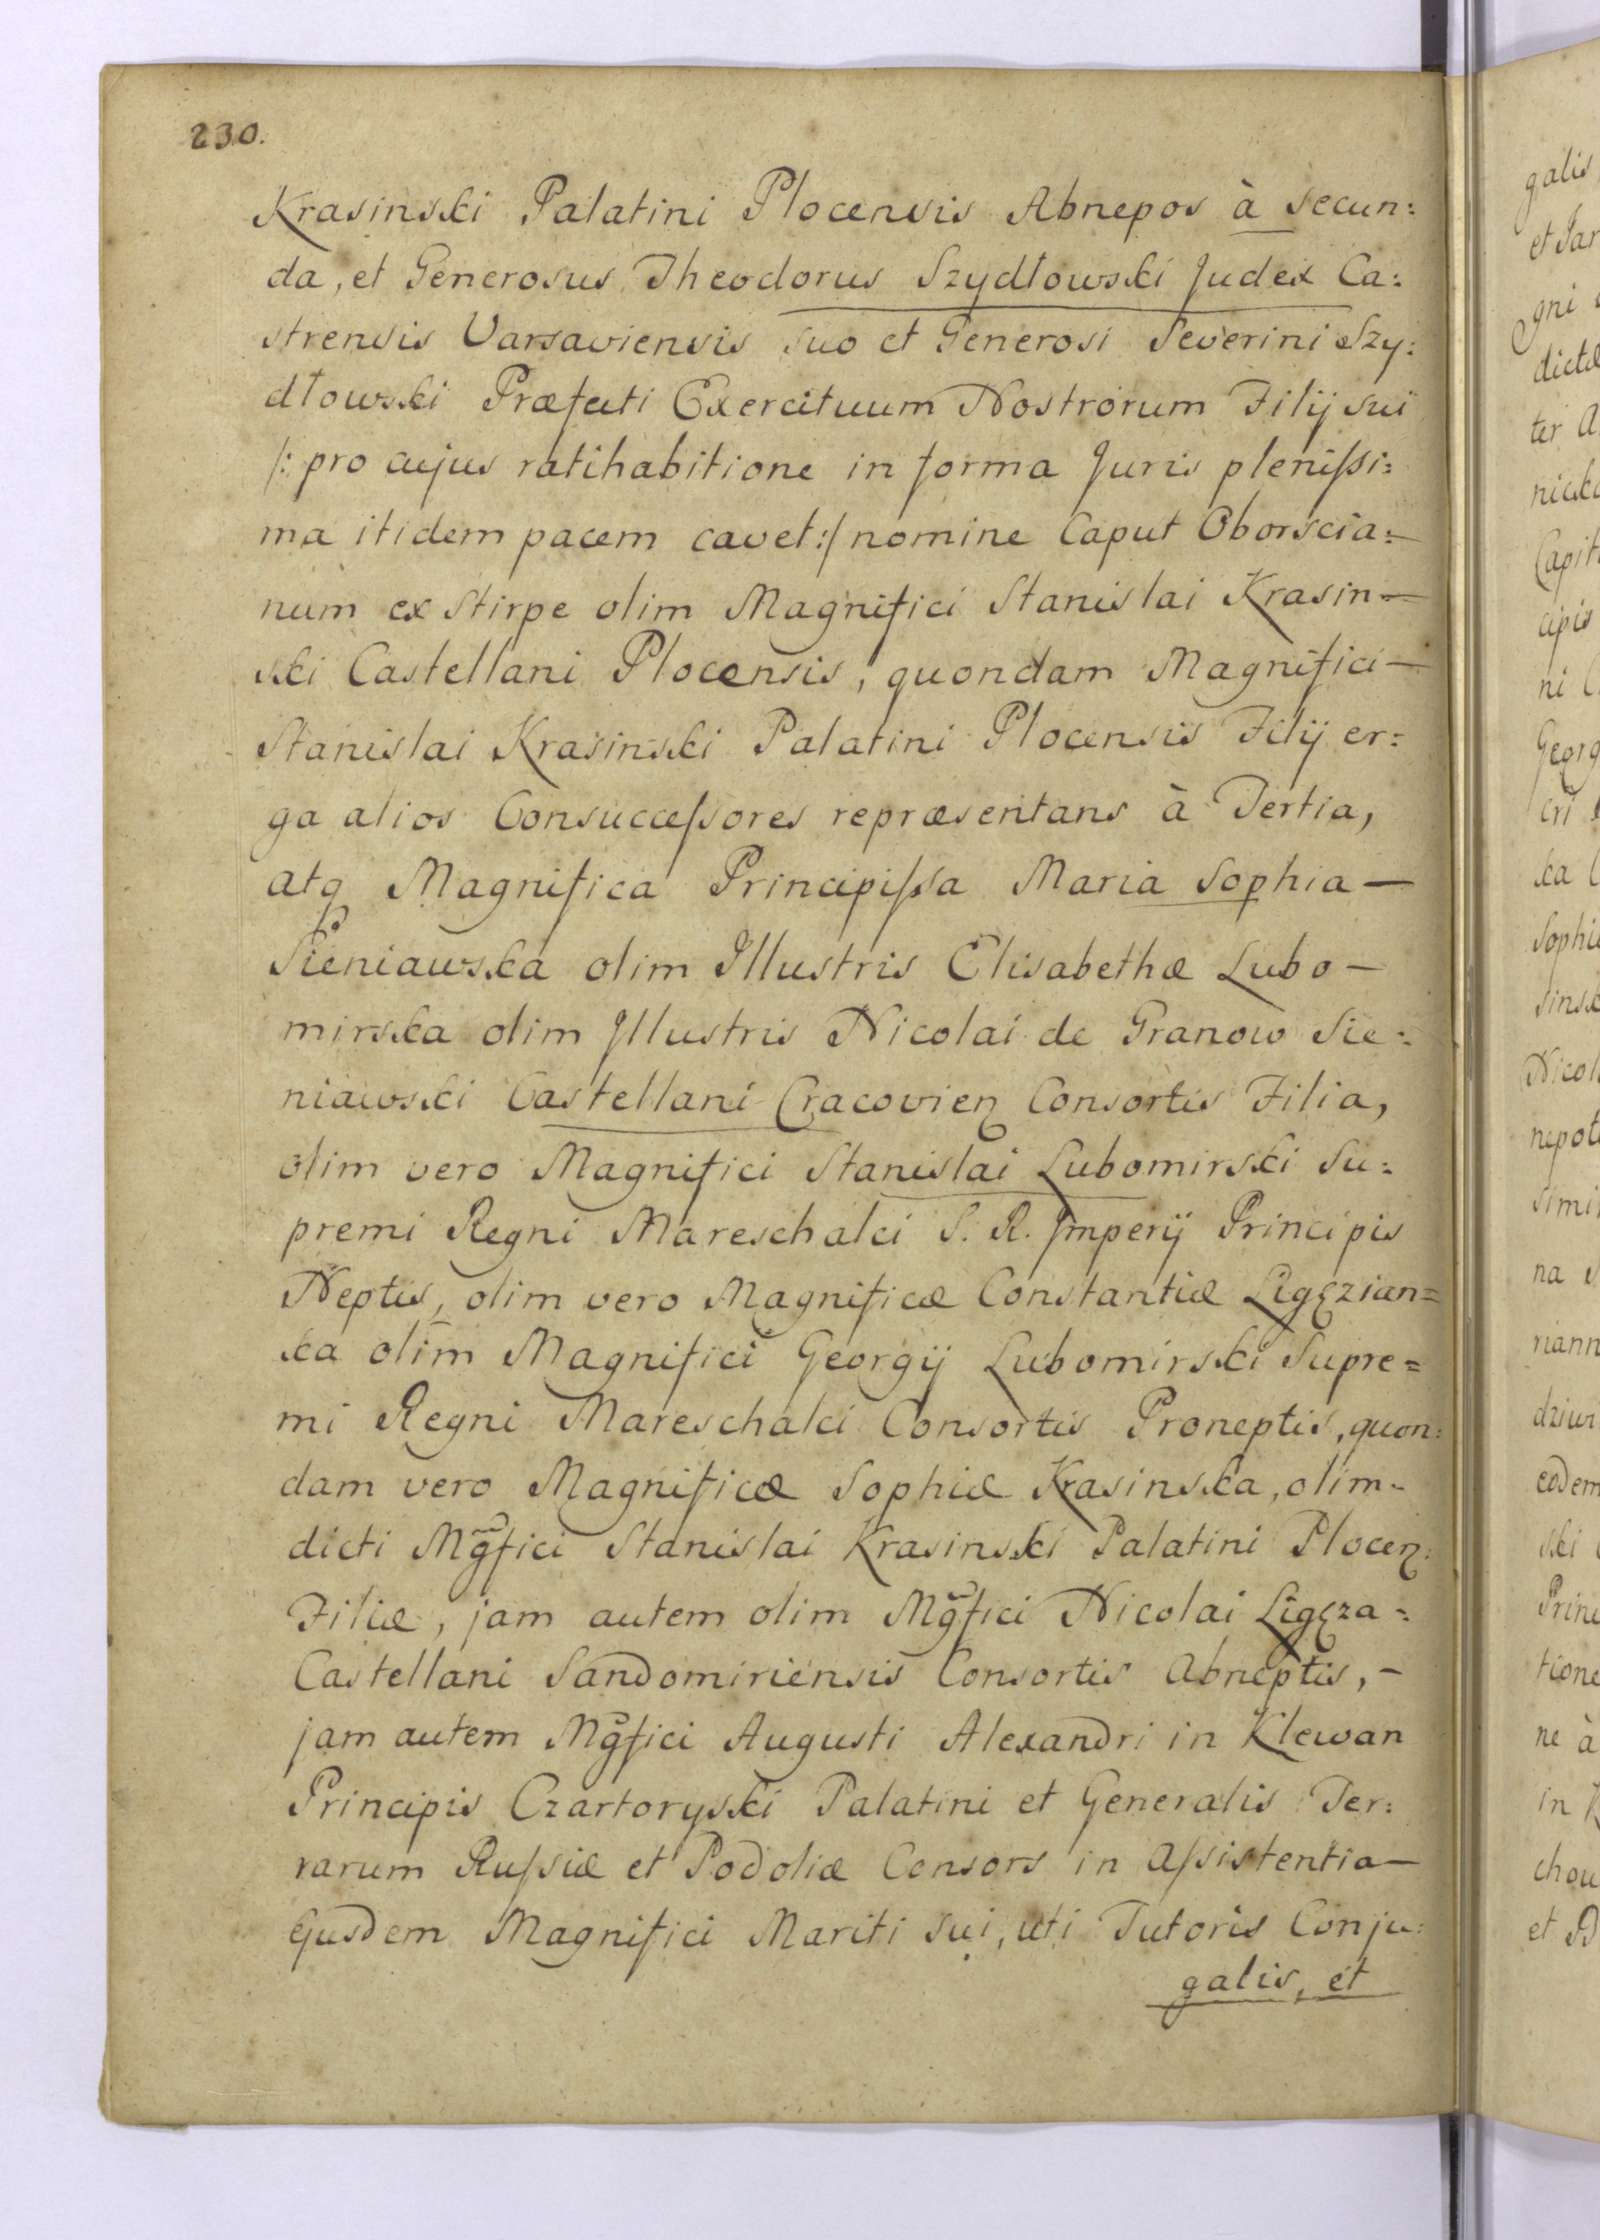 230.
Krasinski Palatini Plocensis Abnepos à secun:
da, et Generosus Theodorus Szydłowski Judex Ca:
strensis Varsaviensis suo et Generosi Severini Szy:
dłowski Præfecti Exercituum Nostrorum Filij sui
/: pro cujus ratihabitione in forma Juris plenissi:
ma itidem pacem cavet :/ nomine Caput Oborscia=
num ex Stirpe olim Magnifici Stanislai Krasin—
ski Castellani Plocensis, quondam Magnifici—
Stanislai Krasinski Palatini Plocensis Filij er:
ga alios Consuccessores repræsentans à Tertia,
atq Magnifica Principissa Maria Sophia—
Sieniawska olim Illustris Elisabethæ Lubo—
mirska olim Illustris Nicolai de Granow Sie:
niawski Castellani Cracovien Consortis Filia,
olim vero Magnifici Stanislai Lubomirski Su:
premi Regni Mareschalci S. R. Imperij Principis
Neptis, olim vero Magnificæ Constantiæ Ligęzian=
ka olim Magnifici Georgij Lubomirski Supre=
mi Regni Mareschalci Consortis Proneptis, quon:
dam vero Magnificæ Sophiæ Krasinska, olim-
dicti Mg̃fici Stanislai Krasinski Palatini Plocen:
Filiæ, jam autem olim Mg̃fici Nicolai Ligęza=
Castellani Sandomiriensis Consortis Abneptis,-
jam autem Mg̃fici Augusti Alexandri in Klewan
Principis Czartoryski Palatini et Generalis Ter:
rarum Russiæ et Podoliæ Consors in Assistentia—
Ejusdem Magnifici Mariti sui, uti Tutoris Conju:
galis, et
galis
gni
ter A
Capit
cipis
ni
Georg
ka
Nicol
na
eodem
ski
Prin
tione
ne à
in K
chow
et